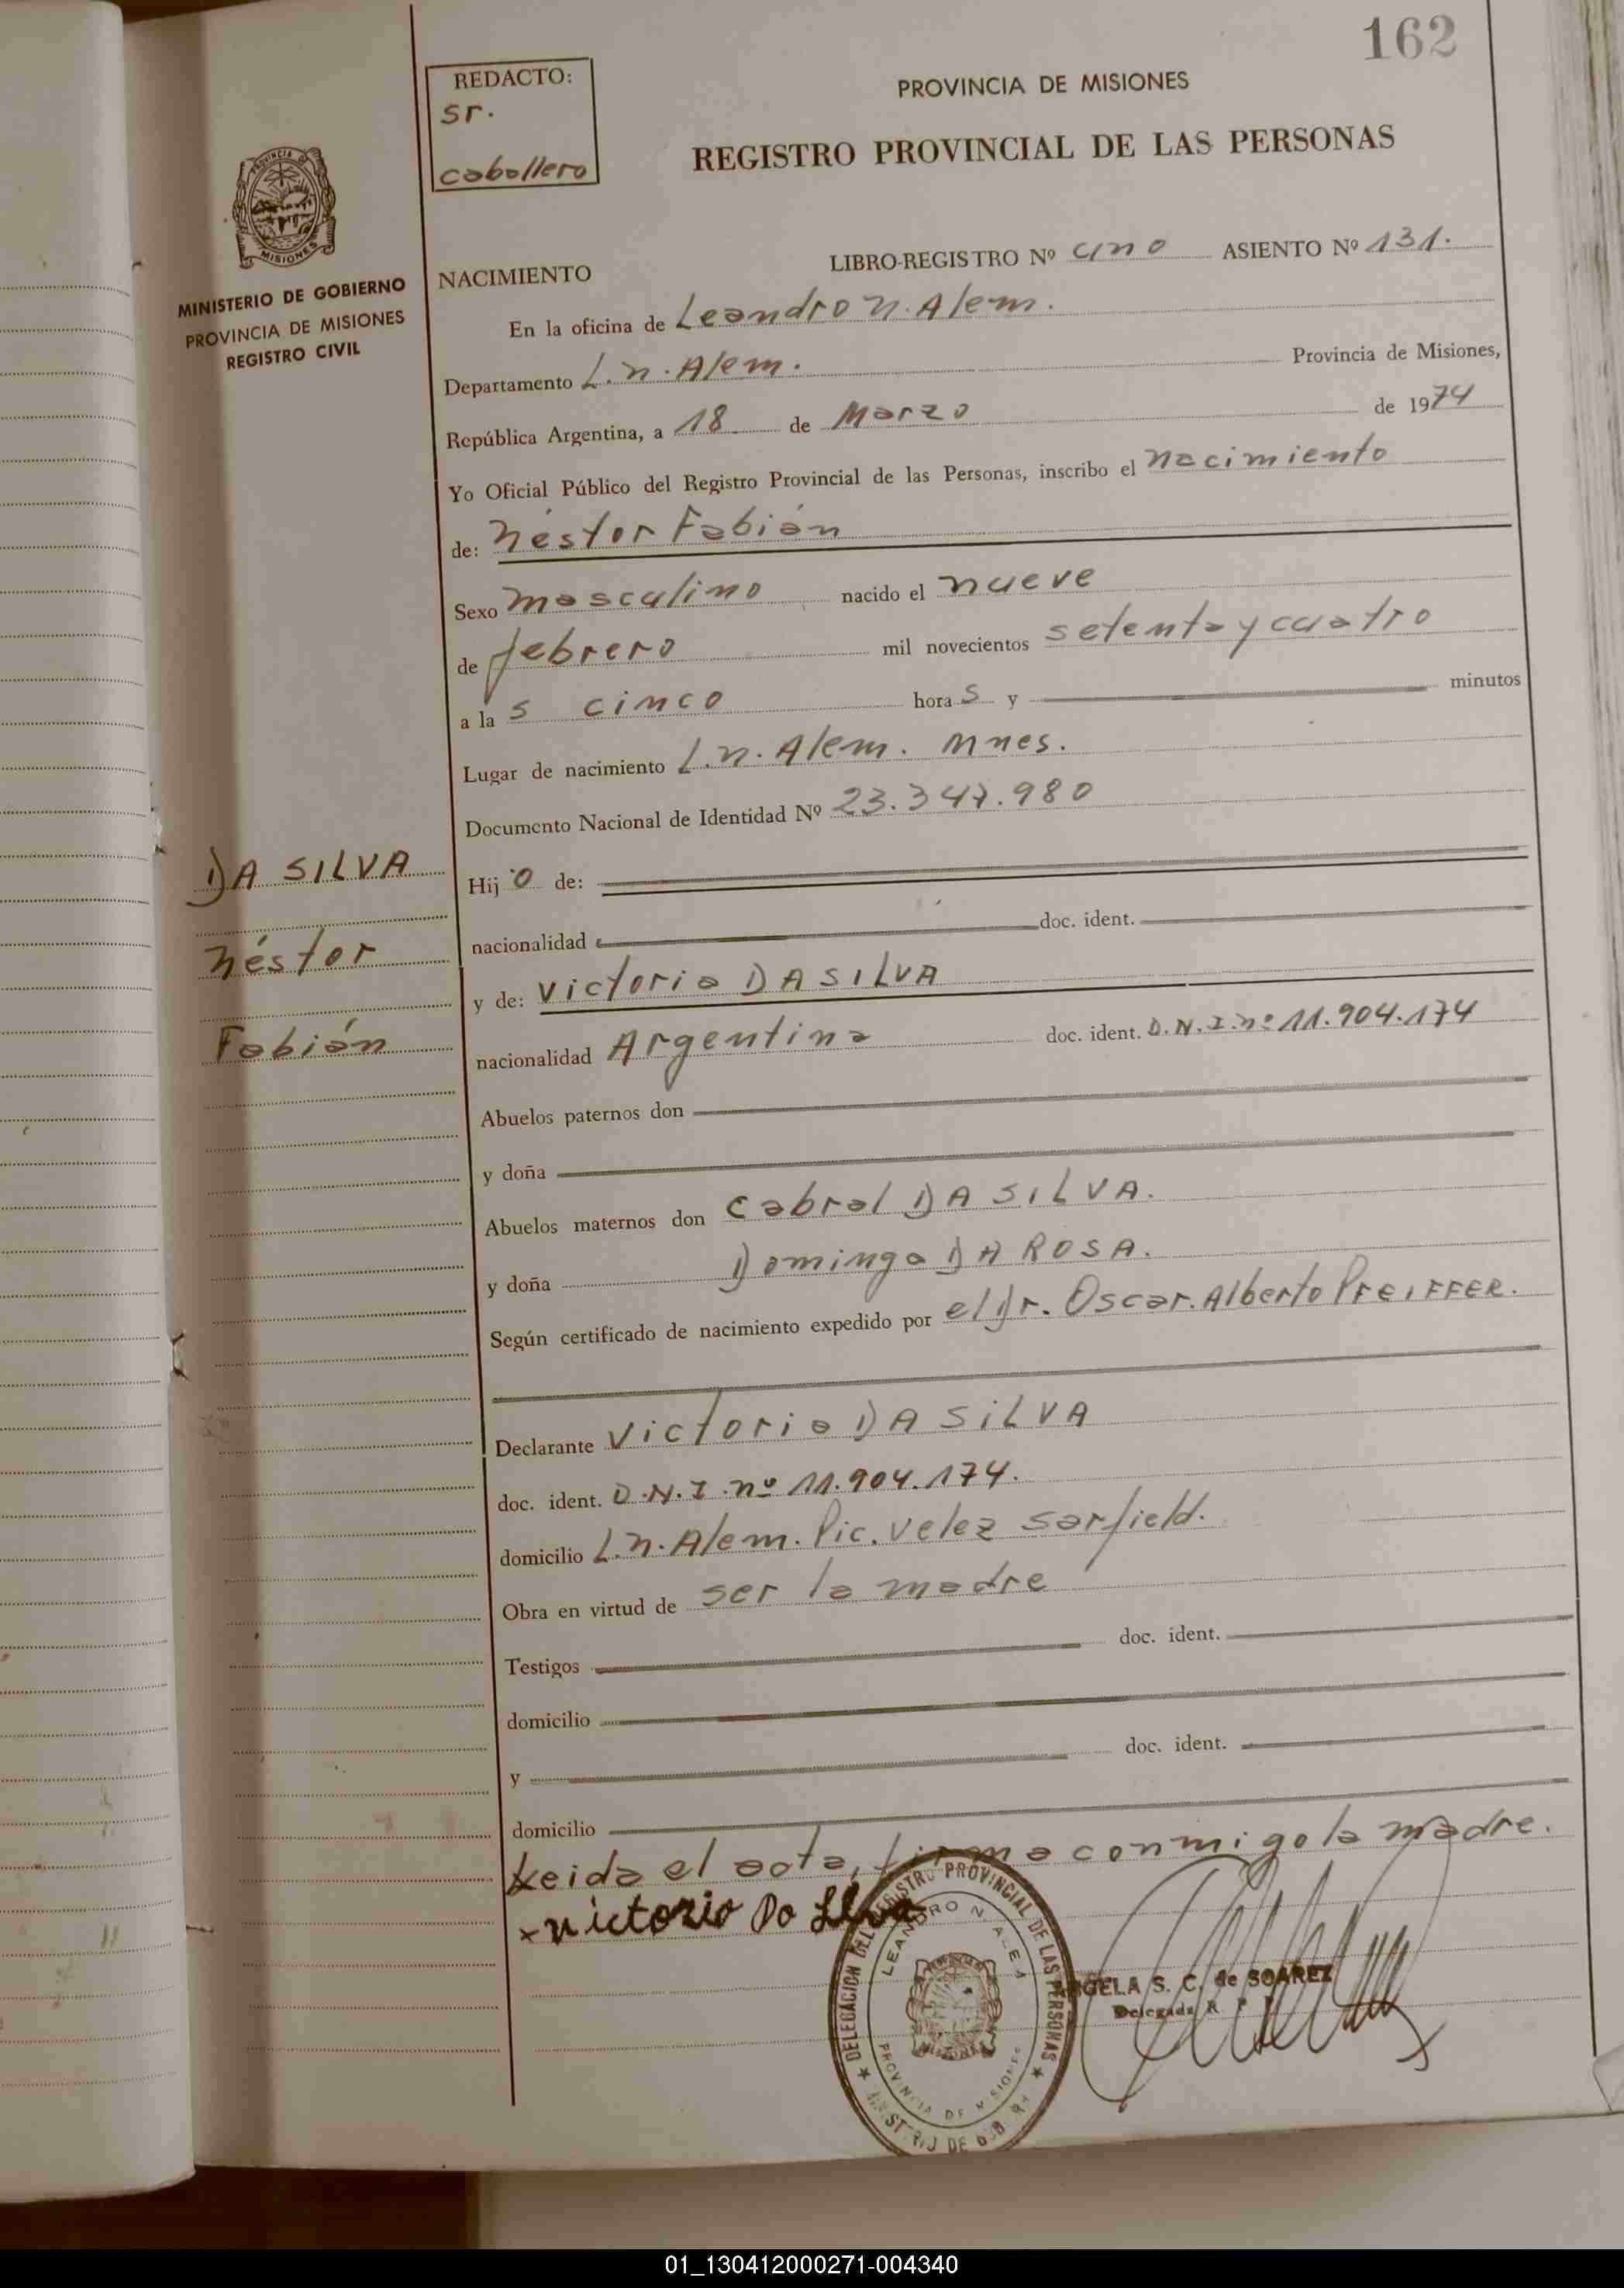 162
REDACTO:
sr.
caballero
PROVINCIA DE MISIONES
REGISTRO PROVINCIAL DE LAS PERSONAS
MISIONES
MINISTERIO DE GOBIERNO
PROVINCIA DE MISIONES
REGISTRO CIVIL
NACIMIENTO
LIBRO-REGISTRO Nº uno ASIENTO Nº 131.
En la oficina de Leandro N. Alem.
Departamento L. N. Alem. Provincia de Misiones,
República Argentina, a 18 de Marzo de 1974
Yo Oficial Público del Registro Provincial de las Personas, inscribo el nacimiento
de: Néstor Fabián
Sexo masculino nacido el nueve
de febrero mil novecientos setenta y cuatro
a la s cinco hora s y minutos
Lugar de nacimiento L. N. Alem. Mnes.
Documento Nacional de Identidad Nº 23.347.980
DA SILVA
Néstor
Fabián
Hij o de:
nacionalidad doc. ident.
y de: Victoria DA SILVA
nacionalidad Argentina doc. ident. D.N.I. nº 11.904.174
Abuelos paternos don
y doña
Abuelos maternos don Cabral DA SILVA.
y doña Dominga DA ROSA.
Según certificado de nacimiento expedido por el Dr. Oscar. Alberto PFEIFFER.
Declarante Victoria DA SILVA
doc. ident. D.N.I. nº 11.904.174.
domicilio L. N. Alem. Pic. Velez Sarfield.
Obra en virtud de ser la madre
Testigos doc. ident.
domicilio
y doc. ident.
domicilio
Leida el acta, firma conmigo la madre.
x victoria Da Silva
DELEGACION DEL REGISTRO PROVINCIAL DE LAS PERSONAS
LEANDRO N. ALEM
PROVINCIA DE MISIONES
ANGELA S. C. de SOAREZ
Delegada R. P.
01_130412000271-004340